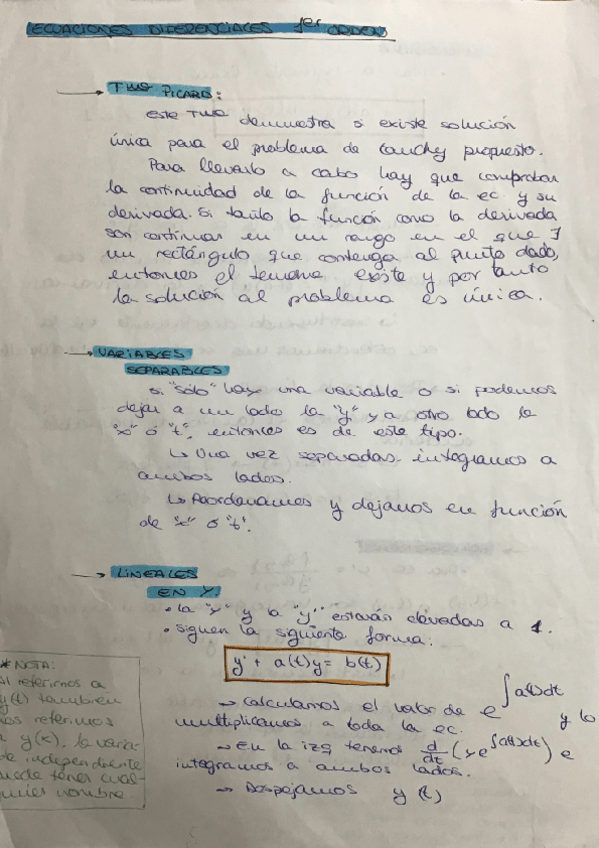 ECUACIONES DIFERENCIALES 1er ORDEN
→ TMA PICARD:
Este TMA demuestra si existe solución
única para el problema de Cauchy propuesto.
Para llevarlo a cabo hay que comprobar
la continuidad de la función de la ec. y su
derivada. Si tanto la función como la derivada
son continuas en un rango en el que ∃
un rectángulo que contenga al punto dado,
entonces el teorema existe y por tanto
la solución al problema es única.
→ VARIABLES
SEPARABLES
Si "sólo" hay una variable o si podemos
dejar a un lado la "y" y a otro lado la
"x" ó "t", entonces es de este tipo.
↳ Una vez separadas, integramos a
ambos lados.
↳ Reordenamos y dejamos en función
de "x" ó "t".
→ LINEALES
EN Y.
• la "y" y la "y'" estarán elevadas a 1.
• Siguen la siguiente forma:
y' + a(t)y = b(t)
→ Calculamos el valor de e^∫a(t)dt y lo
multiplicamos a toda la ec.
→ En la izq tenemos d/dt (y e^∫a(t)dt) e
integramos a ambos lados.
→ Despejamos y(t)
* NOTA:
Al referirnos a
y(t) también
nos referimos
a y(x), la varia-
ble independiente
puede tener cual-
quier nombre